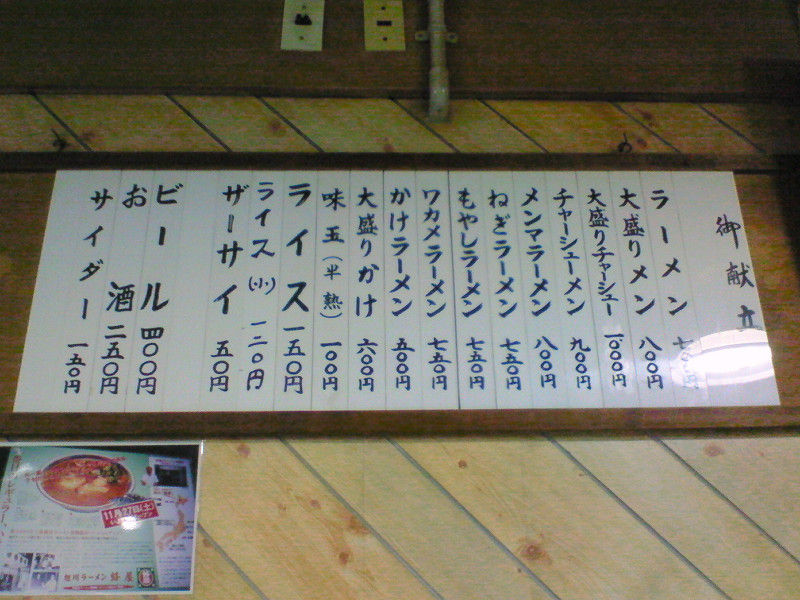 御献立
ラーメン
大盛りメン 八〇〇円
大盛りチャーシュー 一、〇〇〇円
チャーシューメン 九〇〇円
メンマラーメン 八〇〇円
ねぎラーメン 七五〇円
もやしラーメン 七五〇円
ワカメラーメン 七五〇円
かけラーメン 五〇〇円
大盛りかけ 六〇〇円
味玉(半熟) 一〇〇円
ライス 一五〇円
ライス(小) 一二〇円
ザーサイ 五〇円
ビール 四〇〇円
お酒 二五〇円
サイダー 一五〇円
11月27日(土)
旭川ラーメン 蜂屋